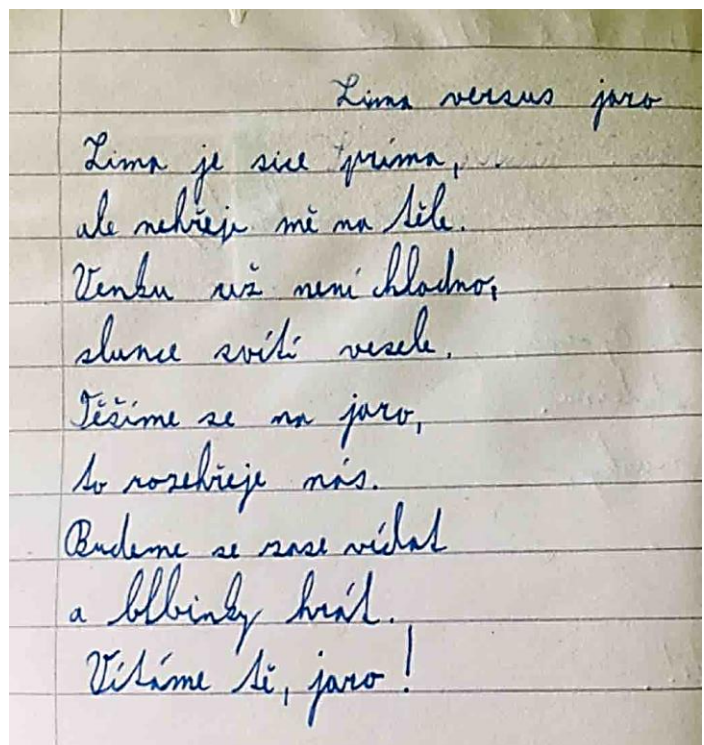 Zima versus jaro
Zima je sice príma,
ale nehřeje mě na těle.
Venku už není chladno,
slunce svítí vesele.
Těšíme se na jaro,
to rozehřeje nás.
Budeme se zase vídat
a blbinky hrát.
Vítáme tě, jaro!